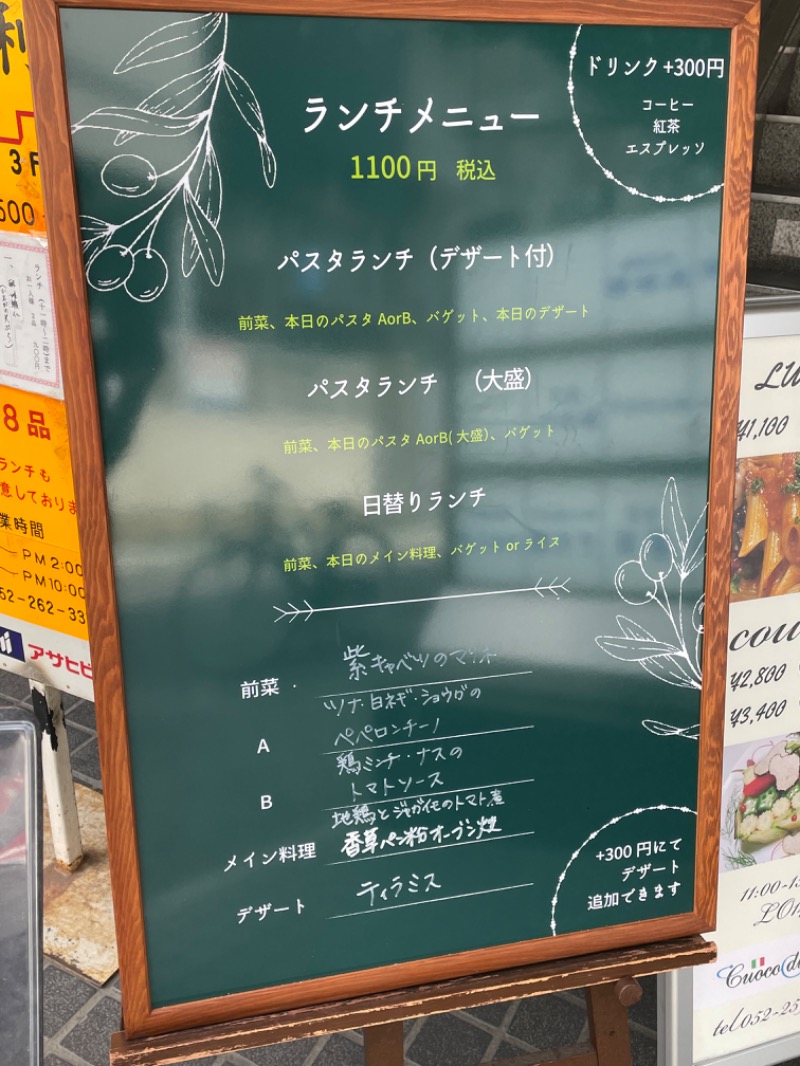 ランチメニュー
1100円 税込
ドリンク+300円
コーヒー
紅茶
エスプレッソ
パスタランチ（デザート付）
前菜、本日のパスタ AorB、バゲット、本日のデザート
パスタランチ （大盛）
前菜、本日のパスタ AorB(大盛)、バゲット
日替りランチ
前菜、本日のメイン料理、バゲット or ライス
前菜 紫キャベツのマリネ
ツナ・白ネギ・ショウガの
A ペペロンチーノ
鶏ミンチ・ナスの
B トマトソース
地鶏とジャガイモのトマト煮
メイン料理 香草パン粉オーブン焼
デザート ティラミス
+300円にて
デザート
追加できます
3F
500
ランチ
8品
ランチも
意しておりま
業時間
PM 2:00
PM 10:00
52-262-33
アサヒビ
LU
¥1,100
cou
¥2,800
¥3,400
11:00-1
L.O1
Cuoco d
tel.052-25